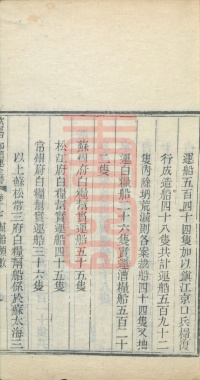 運船五百四十四隻加以鎮江京口兵糧復
行成造船四十八隻共計運船五百九十二
隻內除坍荒減則各案裁船四十四隻又地
運白糧船二十六隻實運漕糧船五百二十
二隻
蘇州府白糧幫實運船五十五隻
松江府白糧幫實運船四十五隻
常州府白糧幫實運船三十六隻
以上蘇松常三府白糧幫船係於蘇太海三